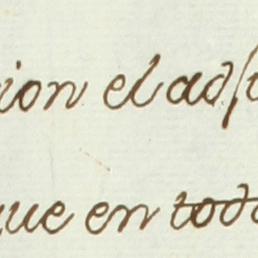 ion el adju
que en todo